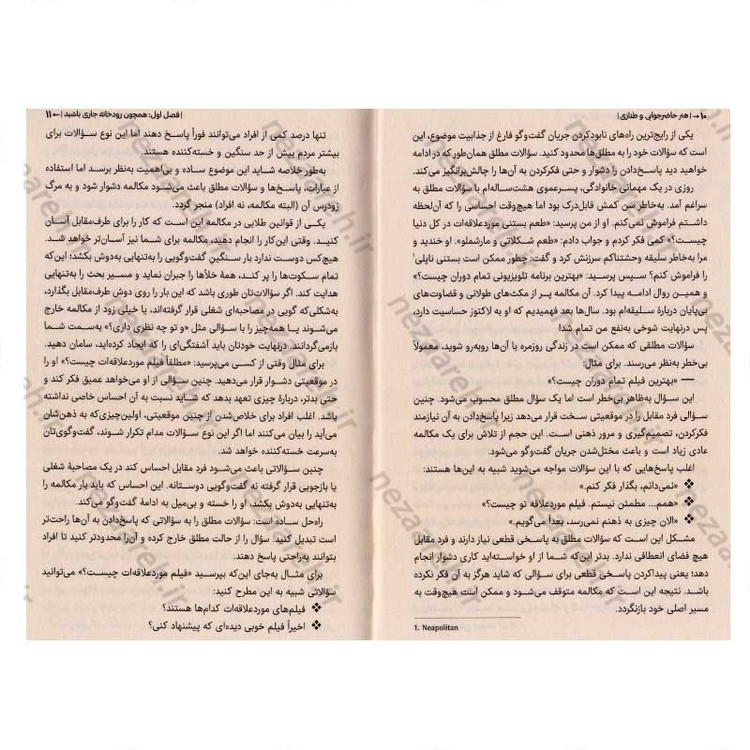 ۱۰ → | هنر حاضرجوابی و طنازی |
یکی از رایج‌ترین راه‌های نابودکردن جریان گفت‌وگو فارغ از جذابیت موضوع، این
است که سؤالات خود را به مطلق‌ها محدود کنید. سؤالات مطلق همان‌طور که در ادامه
خواهید دید پاسخ‌دادن را دشوار و حتی فکرکردن به آن‌ها را چالش‌برانگیز می‌کند.
روزی در یک مهمانی خانوادگی، پسرعموی هشت‌ساله‌ام با سؤالات مطلق به
سراغم آمد. به‌خاطر سن کمش قابل‌درک بود اما هیچ‌وقت احساسی را که آن‌لحظه
داشتم فراموش نمی‌کنم. او از من پرسید: «طعم بستنی موردعلاقه‌ات در کل دنیا
چیست؟» کمی فکر کردم و جواب دادم: «طعم شکلاتی و مارشملو». او خندید و
مرا به‌خاطر سلیقه وحشتناکم سرزنش کرد و گفت: چطور ممکن است بستنی ناپلی¹
را فراموش کنم؟ سپس پرسید: «بهترین برنامه تلویزیونی تمام دوران چیست؟»
و همین روال ادامه پیدا کرد. آن مکالمه پر از مکث‌های طولانی و قضاوت‌های
بی‌پایان دربارهٔ سلیقه‌ام بود. سال‌ها بعد فهمیدیم که او به لاکتوز حساسیت دارد،
پس درنهایت شوخی به‌نفع من تمام شد!
سؤالات مطلقی که ممکن است در زندگی روزمره با آن‌ها روبه‌رو شوید، معمولاً
بی‌خطر به‌نظر می‌رسند. برای مثال:
— «بهترین فیلم تمام دوران چیست؟»
این سؤال به‌ظاهر بی‌خطر است اما یک سؤال مطلق محسوب می‌شود. چنین
سؤالی فرد مقابل را در موقعیتی سخت قرار می‌دهد زیرا پاسخ‌دادن به آن نیازمند
فکرکردن، تصمیم‌گیری و مرور ذهنی است. این حجم از تلاش برای یک مکالمه
عادی زیاد است و باعث مختل‌شدن جریان گفت‌وگو می‌شود.
اغلب پاسخ‌هایی که با این سؤالات مواجه می‌شوید شبیه به این‌ها هستند:
❖ «نمی‌دانم، بگذار فکر کنم.»
❖ «هممم... مطمئن نیستم. فیلم موردعلاقه تو چیست؟»
❖ «الان چیزی به ذهنم نمی‌رسد، بعداً می‌گویم.»
مشکل این است که سؤالات مطلق به پاسخی قطعی نیاز دارند و فرد مقابل
هیچ فضای انعطافی ندارد. بدتر این‌که شما از او خواسته‌اید کاری دشوار انجام
دهد؛ یعنی پیداکردن پاسخی قطعی برای سؤالی که شاید هرگز به آن فکر نکرده
باشد. نتیجه این است که مکالمه متوقف می‌شود و ممکن است هیچ‌وقت به
مسیر اصلی خود بازنگردد.
1. Neapolitan
| فصل اول: همچون رودخانه جاری باشید | ← ۱۱
تنها درصد کمی از افراد می‌توانند فوراً پاسخ دهند اما این نوع سؤالات برای
بیشتر مردم بیش از حد سنگین و خسته‌کننده هستند.
به‌طور خلاصه شاید این موضوع ساده و بی‌اهمیت به‌نظر برسد اما استفاده
از عبارات، پاسخ‌ها و سؤالات مطلق باعث می‌شود مکالمه دشوار شود و به مرگ
زودرس آن (البته مکالمه، نه افراد) منجر گردد.
یکی از قوانین طلایی در مکالمه این است که کار را برای طرف‌مقابل آسان
کنید. وقتی این‌کار را انجام دهید، مکالمه برای شما نیز آسان‌تر خواهد شد.
هیچ‌کس دوست ندارد بار سنگین گفت‌وگویی را به‌تنهایی به‌دوش بکشد؛ این‌که
تمام سکوت‌ها را پر کند، همهٔ خلأها را جبران نماید و مسیر بحث را به‌تنهایی
هدایت کند. اگر سؤالاتان طوری باشد که این بار را روی دوش طرف‌مقابل بگذارد،
به‌شکلی‌که گویی در مصاحبه‌ای شغلی قرار گرفته‌اند، یا خیلی زود از مکالمه خارج
می‌شوند یا همه‌چیز را با سؤالی مثل «و تو چه نظری داری؟» به‌سمت شما
بازمی‌گردانند. درنهایت خودتان باید آشفتگی‌ای را که ایجاد کرده‌اید، سامان دهید.
برای مثال وقتی از کسی می‌پرسید: «مطلقاً فیلم موردعلاقه‌ات چیست؟» او را
در موقعیتی دشوار قرار می‌دهید. چنین سؤالی از او می‌خواهد عمیق فکر کند و
حتی بدتر، دربارهٔ چیزی تعهد بدهد که شاید نسبت به آن احساس خاصی نداشته
باشد. اغلب افراد برای خلاص‌شدن از چنین موقعیتی، اولین‌چیزی‌که به ذهن‌شان
می‌آید را بیان می‌کنند اما اگر این نوع سؤالات مدام تکرار شوند، گفت‌وگوی‌تان
به‌سرعت خسته‌کننده خواهد شد.
چنین سؤالاتی باعث می‌شود فرد مقابل احساس کند در یک مصاحبهٔ شغلی
یا بازجویی قرار گرفته نه گفت‌وگویی دوستانه. این احساس که باید بار مکالمه را
به‌تنهایی به‌دوش بکشد، او را خسته و بی‌میل به ادامهٔ گفت‌وگو می‌کند.
راه‌حل ساده است: سؤالات مطلق را به سؤالاتی که پاسخ‌دادن به آن‌ها راحت‌تر
است تبدیل کنید. سؤال را از حالت مطلق خارج کرده و آن‌را محدودتر کنید تا افراد
بتوانند به‌راحتی پاسخ دهند.
برای مثال به‌جای این‌که بپرسید «فیلم موردعلاقه‌ات چیست؟» می‌توانید
سؤالاتی شبیه به این مطرح کنید:
❖ فیلم‌های موردعلاقه‌ات کدام‌ها هستند؟
❖ اخیراً فیلم خوبی دیده‌ای که پیشنهاد کنی؟
nezaareh.ir